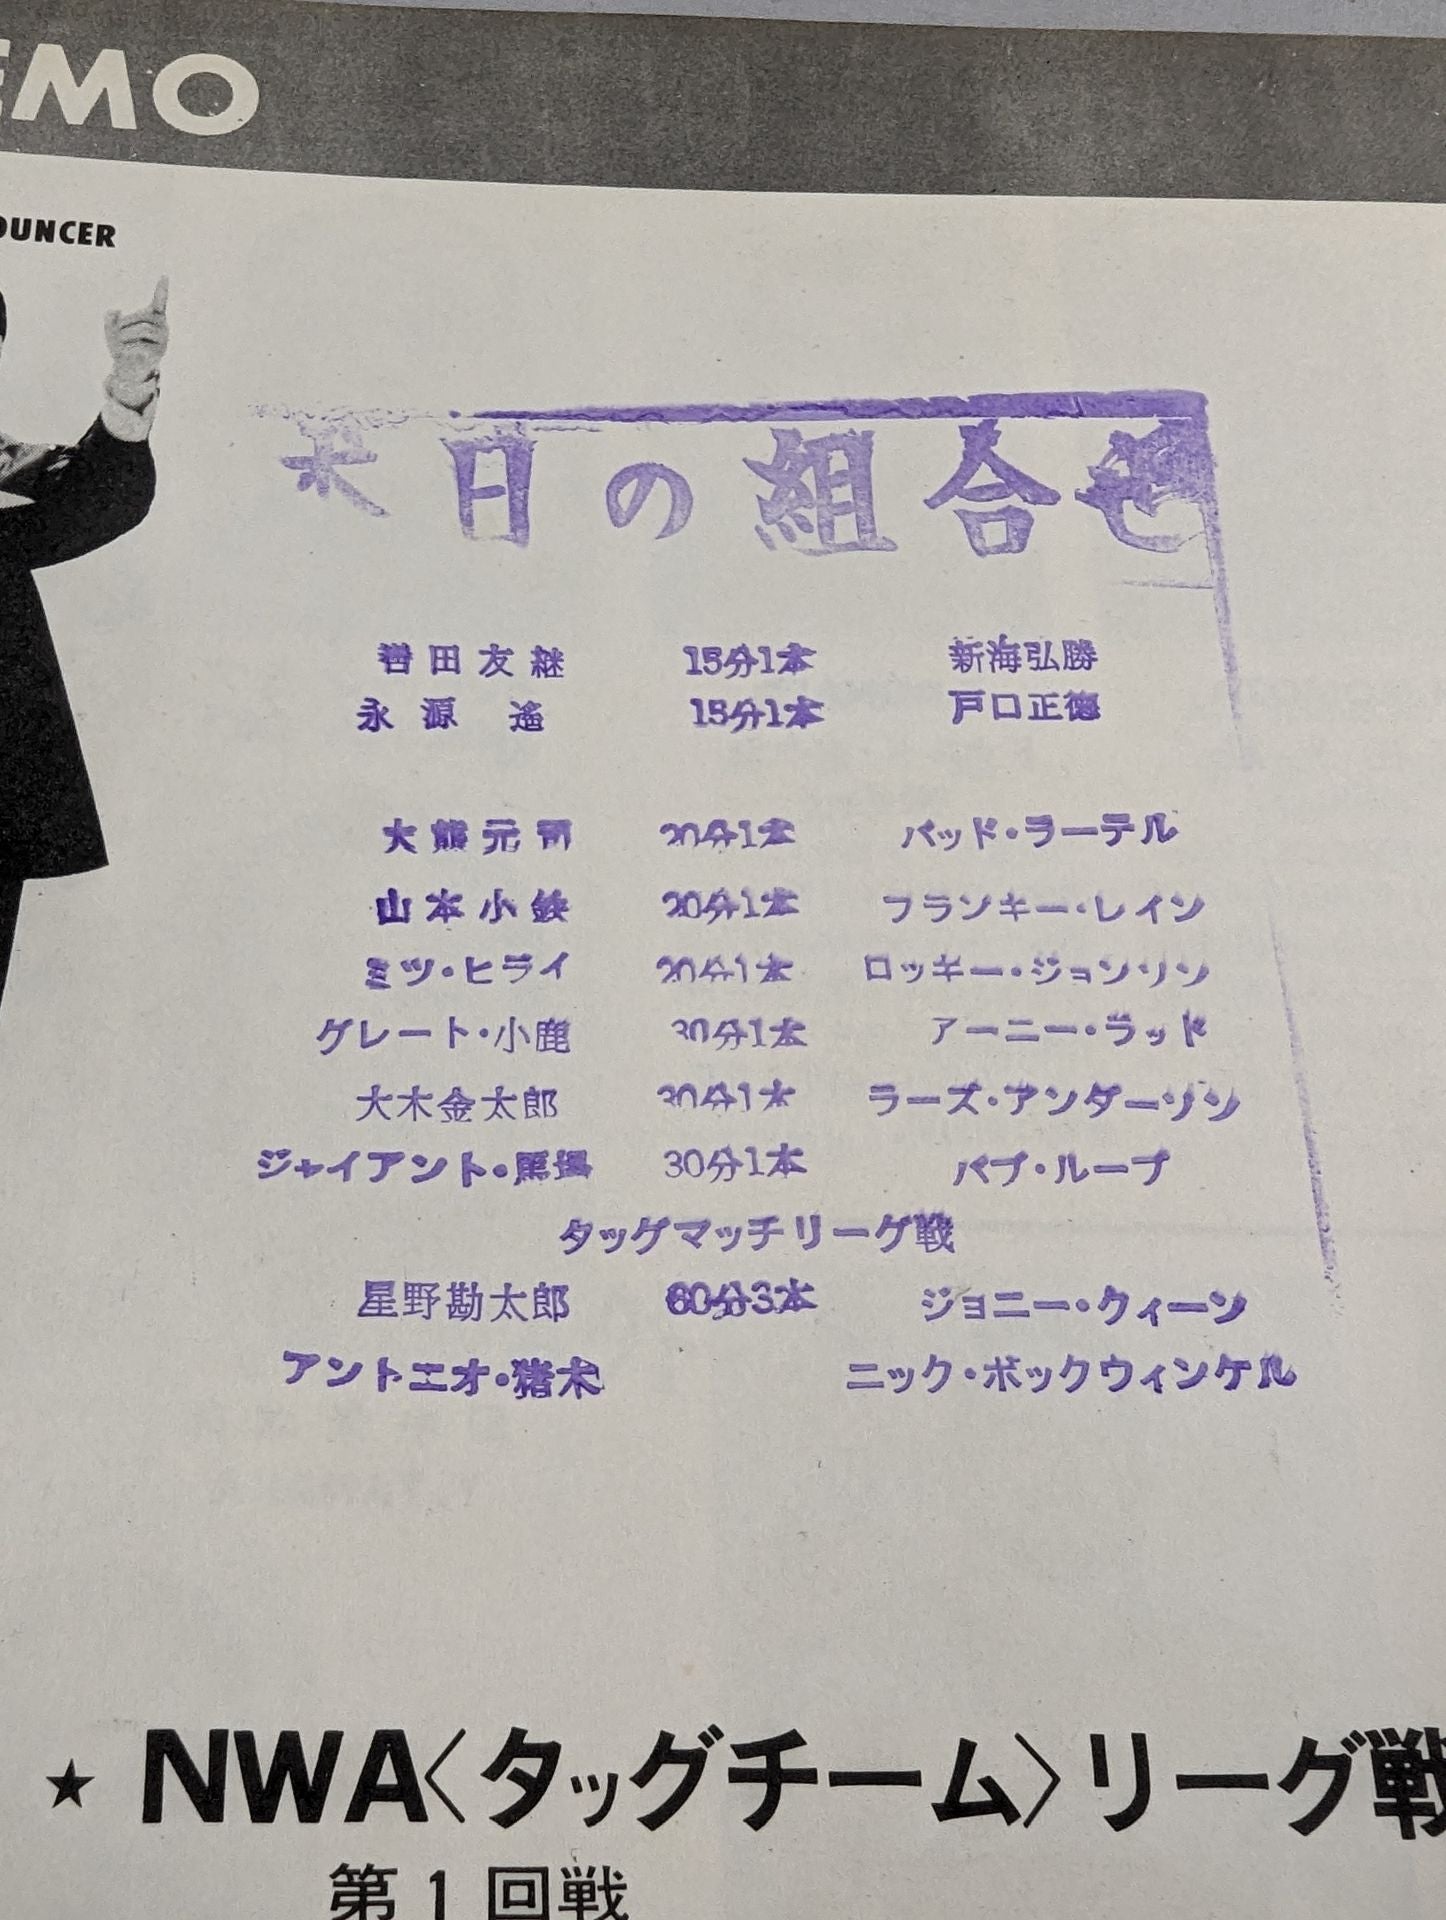 EMO
OUNCER
本日の組合せ
轡田友継 15分1本 新海弘勝
永源遙 15分1本 戸口正徳
大熊元司 20分1本 バッド・ラーテル
山本小鉄 20分1本 フランキー・レイン
ミツ・ヒライ 20分1本 ロッキー・ジョンソン
グレート・小鹿 30分1本 アーニー・ラッド
大木金太郎 30分1本 ラーズ・アンダーソン
ジャイアント・馬場 30分1本 バブ・ループ
タッグマッチリーグ戦
星野勘太郎 60分3本 ジョニー・クィーン
アントニオ・猪木 ニック・ボックウィンケル
★ NWA〈タッグチーム〉リーグ戦
第1回戦